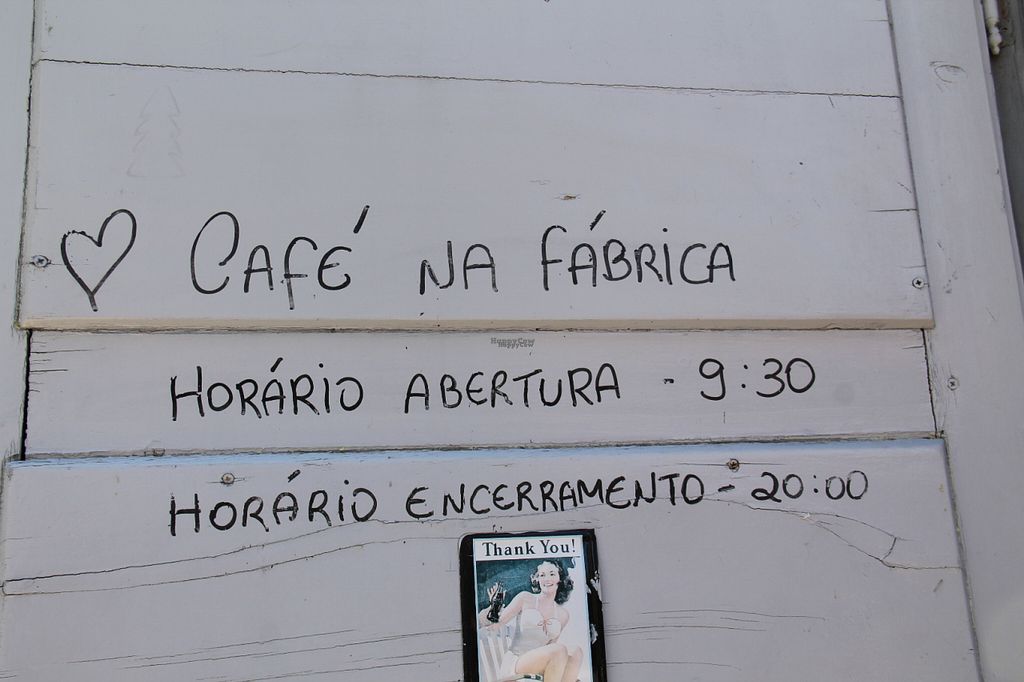 CAFÉ NA FÁBRICA
HappyCow
HappyCow
HORÁRIO ABERTURA - 9:30
HORÁRIO ENCERRAMENTO - 20:00
Thank You!